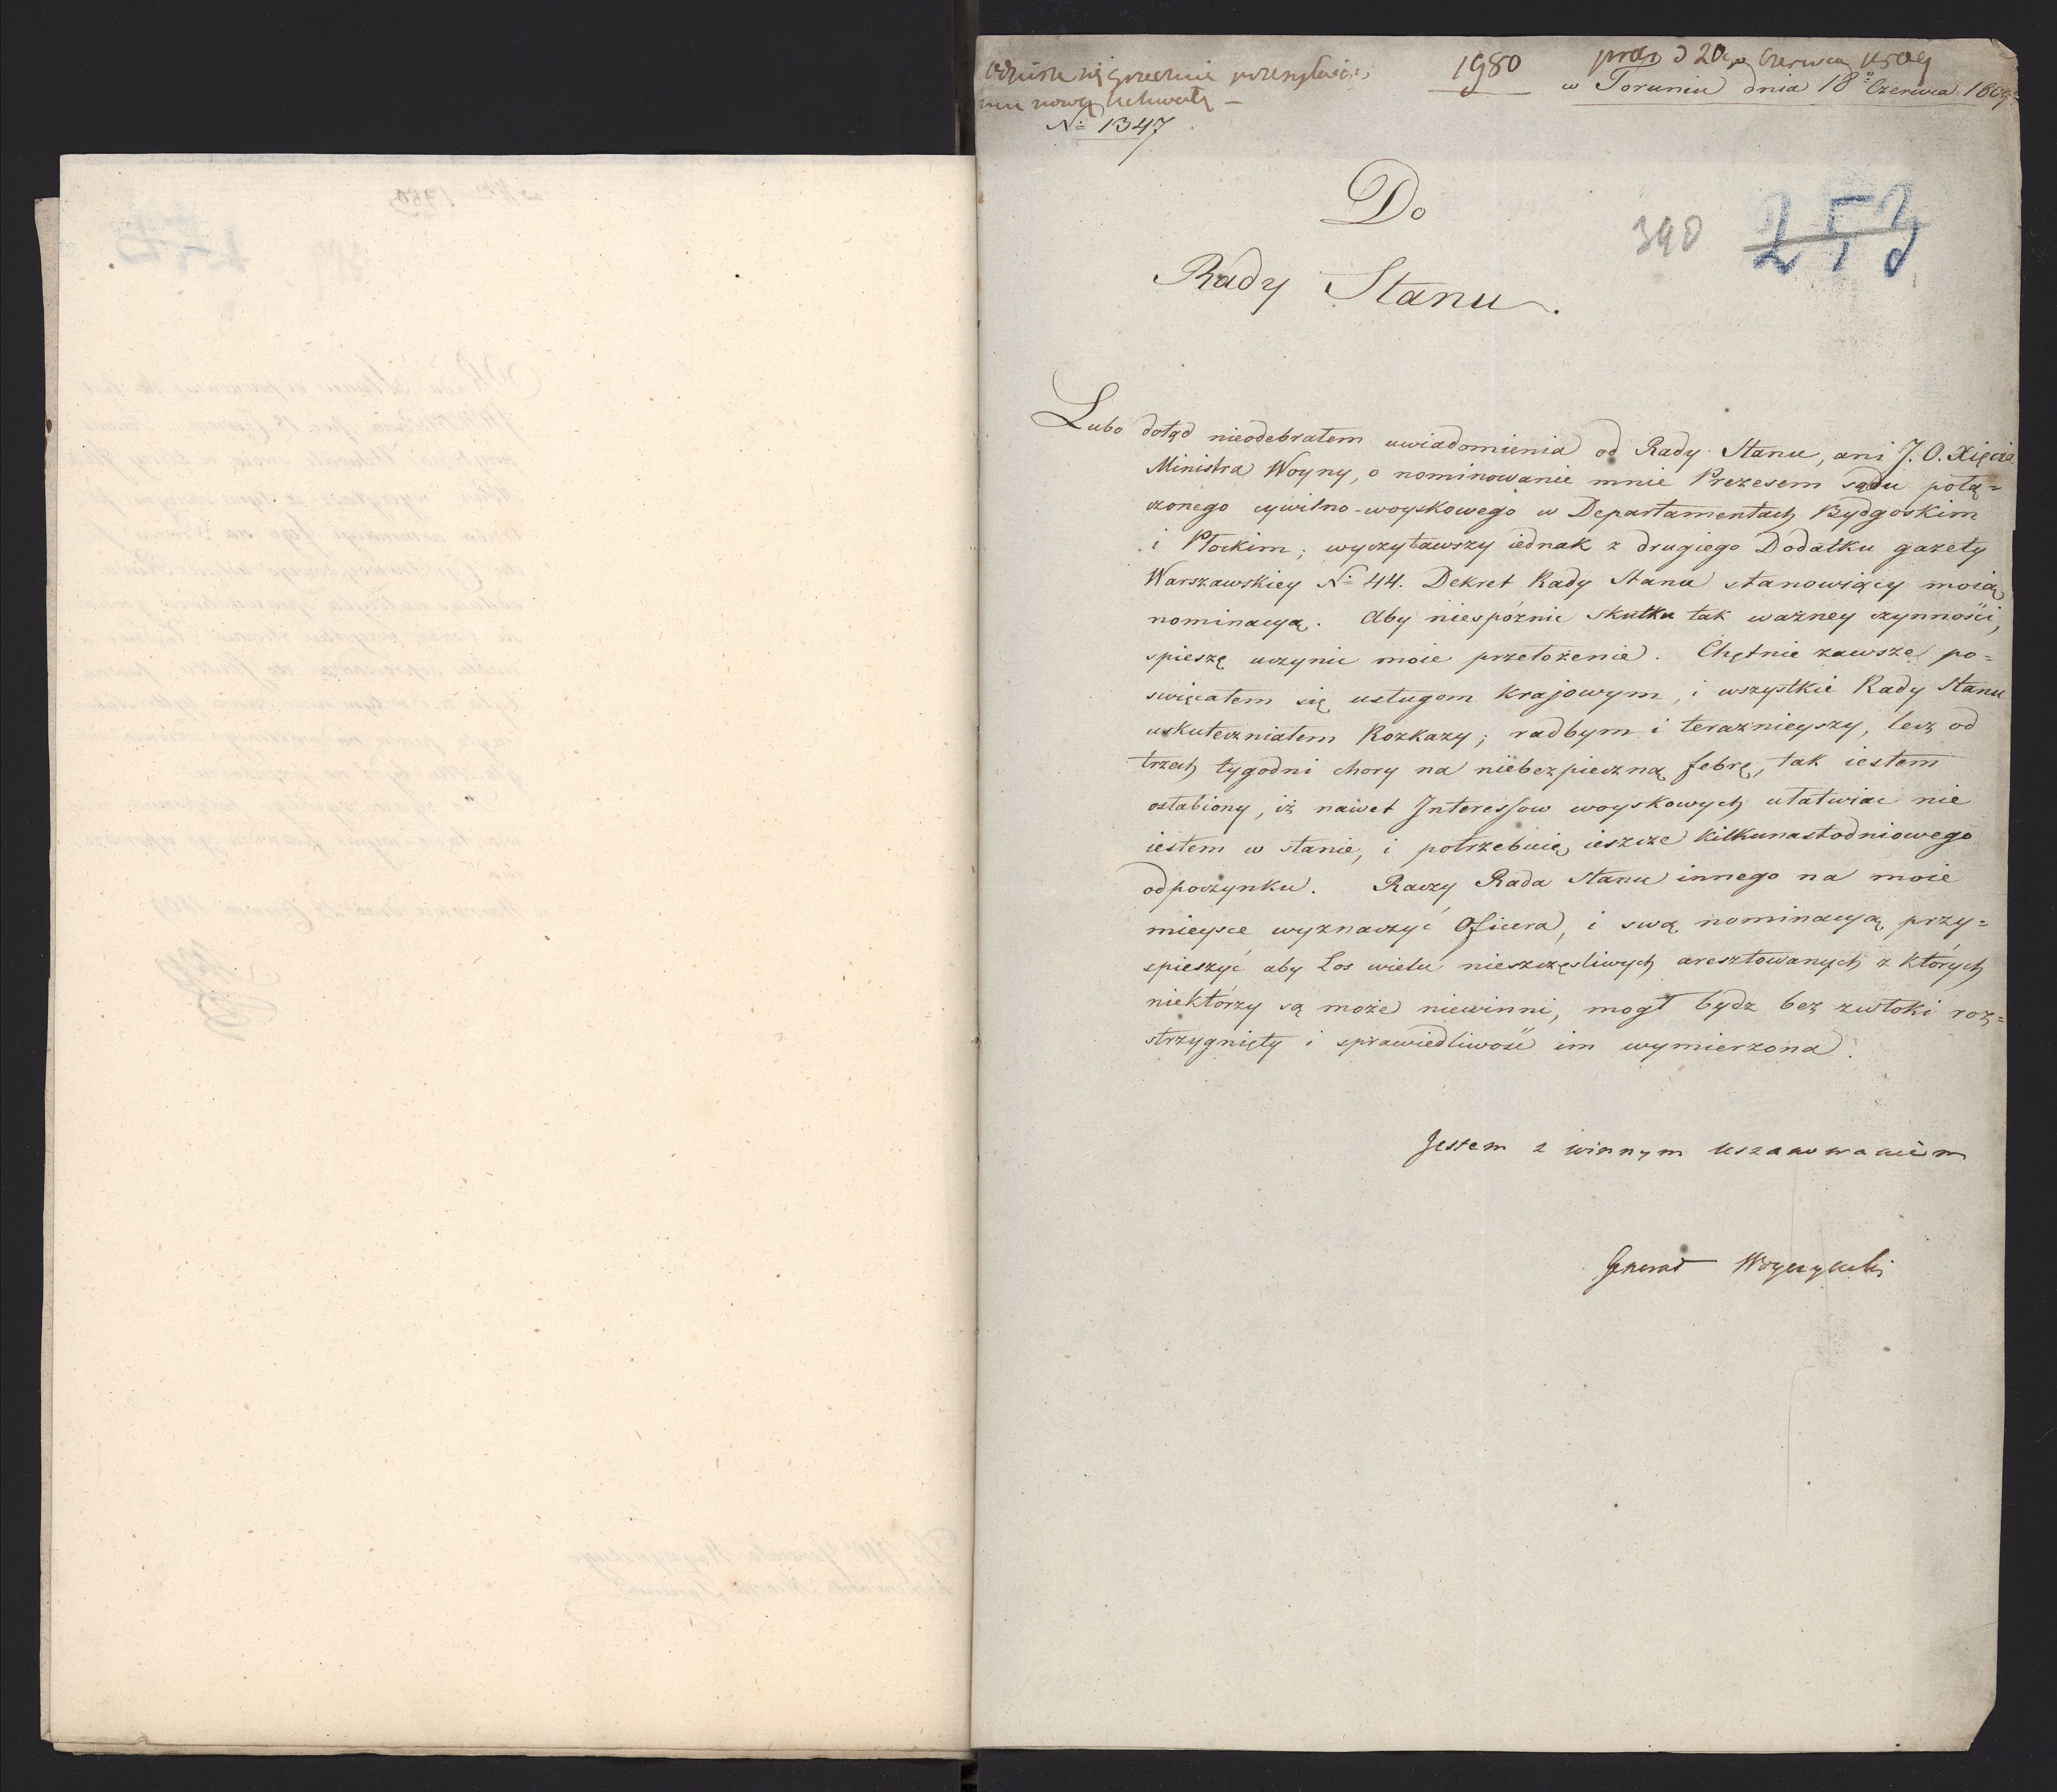 odpisze się grzecznie przesyłaiąc
mu nową Uchwałę –
1980
praes d 20go Czerwca 1809
w Toruniu dnia 18o Czerwca 1809
No 1347
Do
340
253
Rady Stanu.
Lubo dotąd nieodebrałem uwiadomienia od Rady Stanu, ani J. O. Xięcia
Ministra Woyny, o nominowanie mnie Prezesem sądu połą=
czonego cywilno-woyskowego w Departamentach Bydgoskim
i Płockim; wyczytawszy iednak z drugiego Dodatku gazety
Warszawskiey No 44. Dekret Rady Stanu stanowiący moią
nominacyą. Aby niespóznić skutku tak ważney czynności,
spieszę uczynić moie przełożenie. Chętnie zawsze po=
swięcałem się usługom Krajowym, i wszystkie Rady Stanu
uskuteczniałem Rozkazy; radbym i teraznieyszy, lecz od
trzech tygodni chory na niebezpieczną febrę, tak iestem
osłabiony, iż nawet Interessow woyskowych ułatwiac nie
iestem w stanie, i potrzebuię ieszcze kilkunastodniowego
odpoczynku. Raczy Rada Stanu innego na moie
mieysce wyznaczyć Oficera, i swą nominacyą przy=
spieszyć aby Los wielu nieszczęsliwych aresztowanych z których
niektórzy są może niewinni, mogł bydz bez zwłoki roz=
strzygnięty i sprawiedliwość im wymierzona.
Jestem z winnym uszanowaniem
Generał Woyczyński